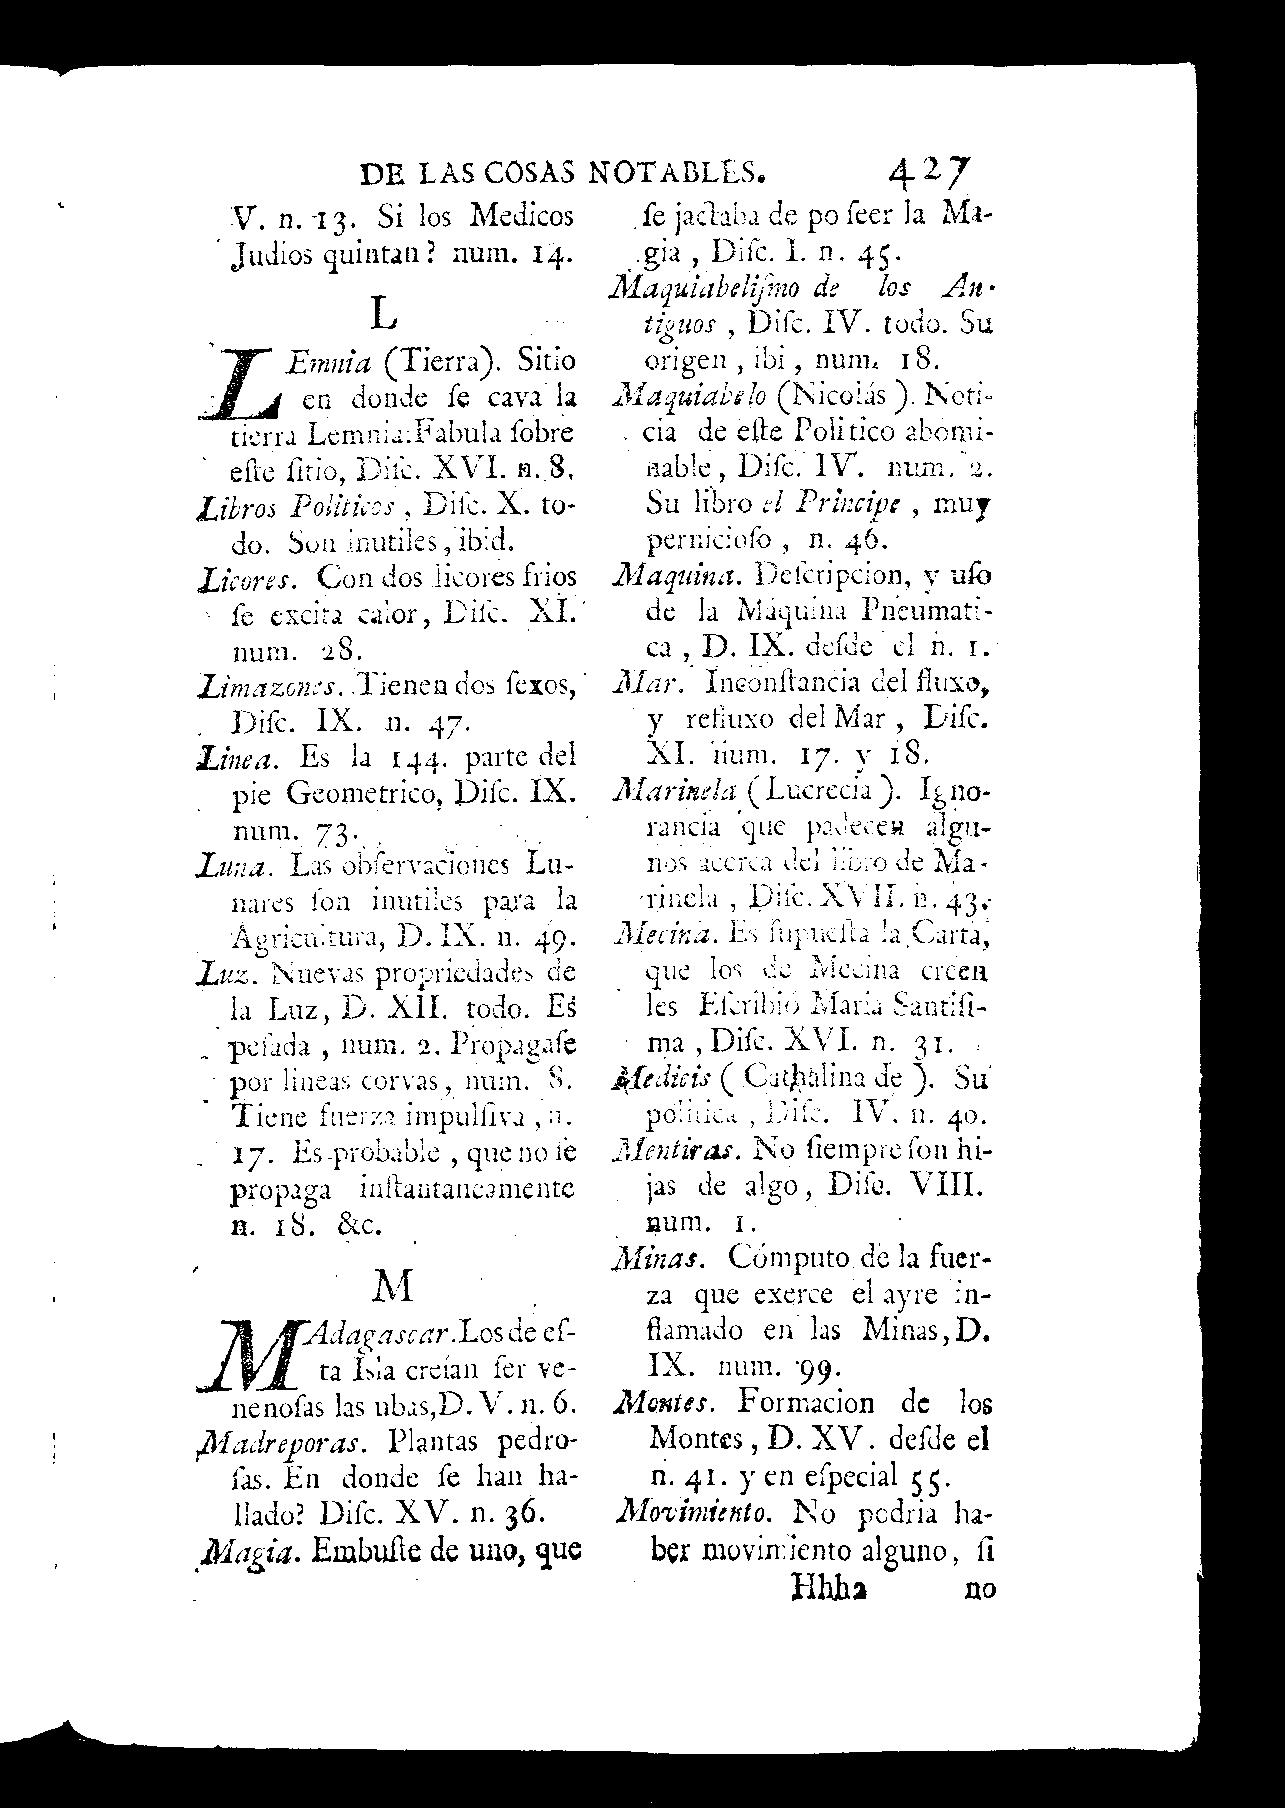 DE LAS COSAS NOTABLES. 427
V. n. 13. Si los Medicos
Judios quintan? num. 14.
L
LEmnia (Tierra). Sitio
en donde ſe cava la
tierra Lemnia: Fabula ſobre
eſte ſitio, Diſc. XVI. n. 8.
Libros Politicos, Diſc. X. to-
do. Son inutiles, ibid.
Licores. Con dos licores frios
ſe excita calor, Diſc. XI.
num. 28.
Limazones. Tienen dos ſexos,
Diſc. IX. n. 47.
Linea. Es la 144. parte del
pie Geometrico, Diſc. IX.
num. 73.
Luna. Las obſervaciones Lu-
nares ſon inutiles para la
Agricultura, D. IX. n. 49.
Luz. Nuevas propriedades de
la Luz, D. XII. todo. Es
peſada, num. 2. Propagaſe
por lineas corvas, num. 8.
Tiene fuerza impulſiva, n.
17. Es probable, que no ſe
propaga inſtantaneamente
n. 18. &c.
M
MAdagascar. Los de eſ-
ta Isla creían ſer ve-
nenoſas las ubas, D. V. n. 6.
Madreporas. Plantas pedro-
ſas. En donde ſe han ha-
llado? Diſc. XV. n. 36.
Magia. Embuſte de uno, que
ſe jactaba de poſeer la Ma-
gia, Diſc. I. n. 45.
Maquiabeliſmo de los An-
tiguos, Diſc. IV. todo. Su
origen, ibi, num. 18.
Maquiabelo (Nicolás). Noti-
cia de eſte Politico abomi-
nable, Diſc. IV. num. 2.
Su libro el Principe, muy
pernicioſo, n. 46.
Maquina. Deſcripcion, y uſo
de la Maquina Pneumati-
ca, D. IX. deſde el n. 1.
Mar. Inconſtancia del fluxo,
y refluxo del Mar, Diſc.
XI. num. 17. y 18.
Marinela (Lucrecia). Igno-
rancia que padecen algu-
nos acerca del libro de Ma-
rinela, Diſc. XVII. n. 43.
Mecina. Es ſupueſta la Carta,
que los de Mecina creen
les Eſcribió Maria Santiſi-
ma, Diſc. XVI. n. 31.
Medicis (Cathalina de). Su
politica, Diſc. IV. n. 40.
Mentiras. No ſiempre ſon hi-
jas de algo, Diſc. VIII.
num. 1.
Minas. Cómputo de la fuer-
za que exerce el ayre in-
flamado en las Minas, D.
IX. num. 99.
Montes. Formacion de los
Montes, D. XV. deſde el
n. 41. y en eſpecial 55.
Movimiento. No podria ha-
ber movimiento alguno, ſi
Hhh2 no